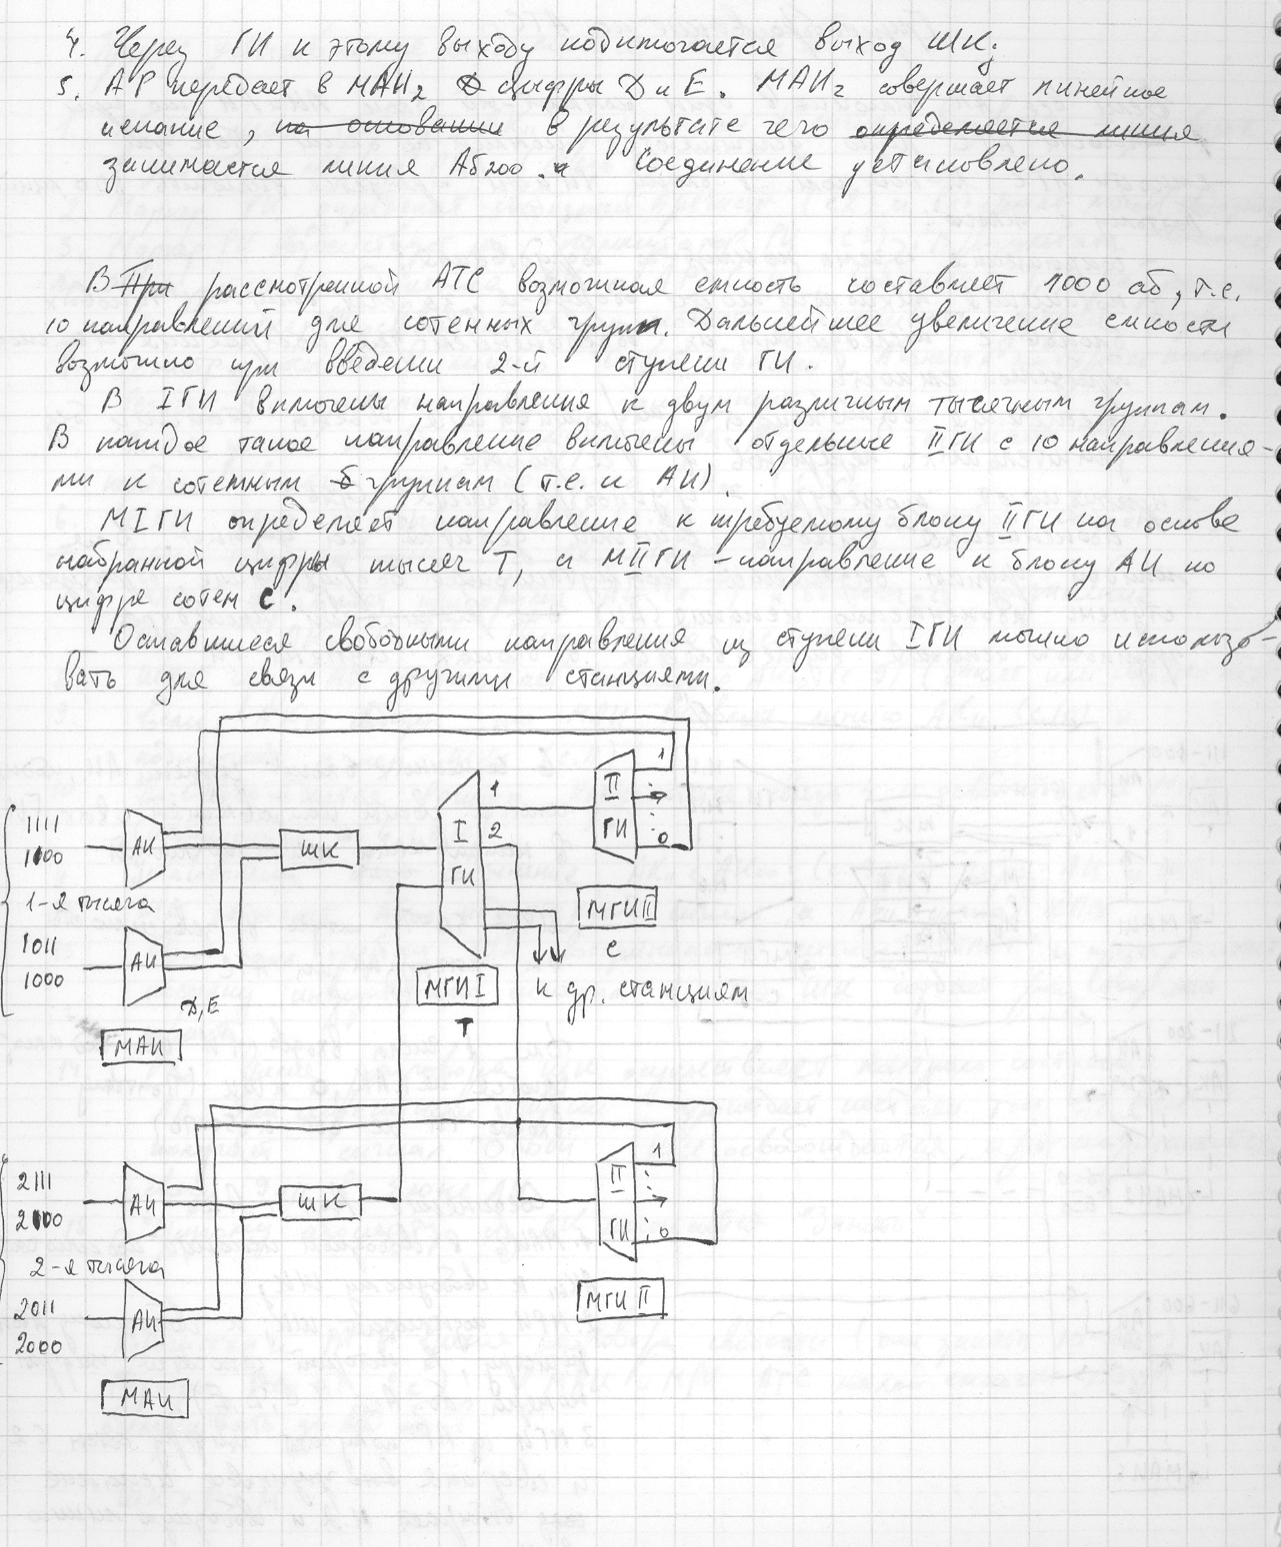 4. Через ГИ к этому выходу подключается выход ШК;
5. АР передает в МАИ2 цифры D и E. МАИ2 совершает линейное
искание, на основании в результате чего определяется линия
занимается линия Аб200. Соединение установлено.
В При рассмотренной АТС возможная емкость составляет 1000 аб, т.е.
10 направлений для сотенных групп. Дальнейшее увеличение емкости
возможно при введении 2-й ступени ГИ.
В IГИ включены направления к двум различным тысячным группам.
В каждое такое направление включены отдельные IIГИ с 10 направления-
ми к сотенным группам (т.е. к АИ).
МIГИ определяет направление к требуемому блоку IIГИ на основе
набранной цифры тысяч Т, а МIIГИ - направление к блоку АИ по
цифре сотен С.
Оставшиеся свободными направления из ступени IГИ можно использо-
вать для связи с другими станциями.
1 II ГИ 0
1 2 I ГИ
1111 1100 АИ ШК
1-я тысяча
МГИ II
С
1011 1000 АИ
D, E
МГИ I
Т
к др. станциям
МАИ
1 II ГИ 0
2111 2100 АИ ШК
2-я тысяча
МГИ II
2011 2000 АИ
МАИ